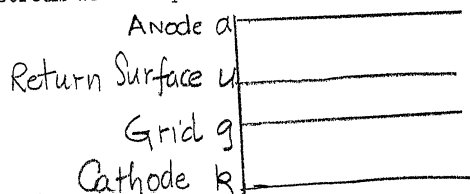 Anode a
Return Surface u
Grid g
Cathode k